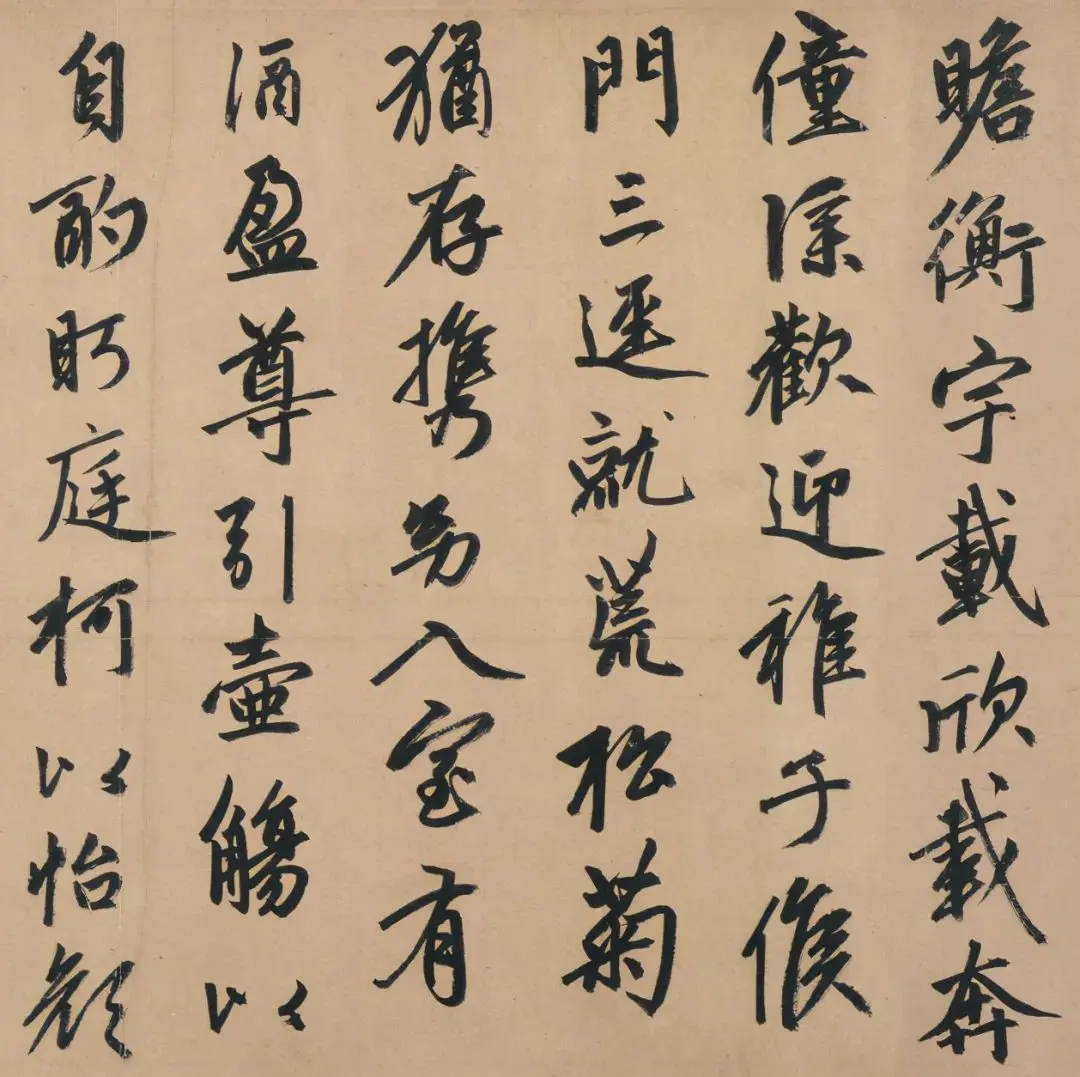 瞻衡宇載欣載奔
僮僕歡迎稚子候
門三逕就荒松菊
猶存携幼入室有
酒盈尊引壺觴以
自酌眄庭柯以怡顔